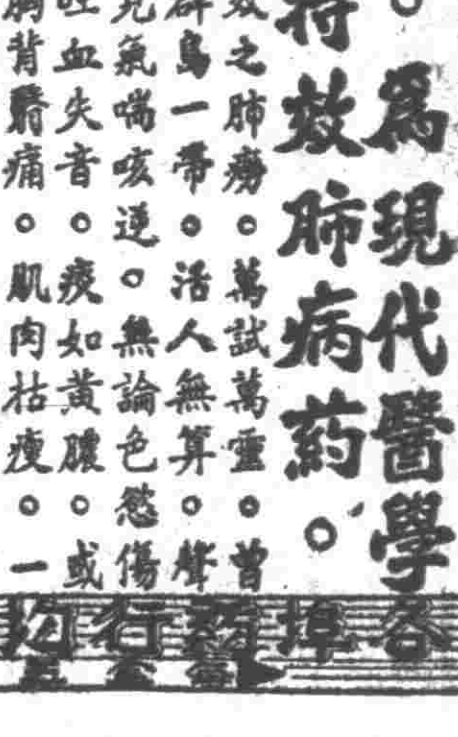 。為現代醫學
特效肺病葯。
效之肺癆。萬試萬靈。曾
群島一帶。活人無算。聲
氣喘咳逆。無論色慾傷
吐血失音。痰如黃膿。或
胸背髒痛。肌肉枯瘦。一
各埠葯行均